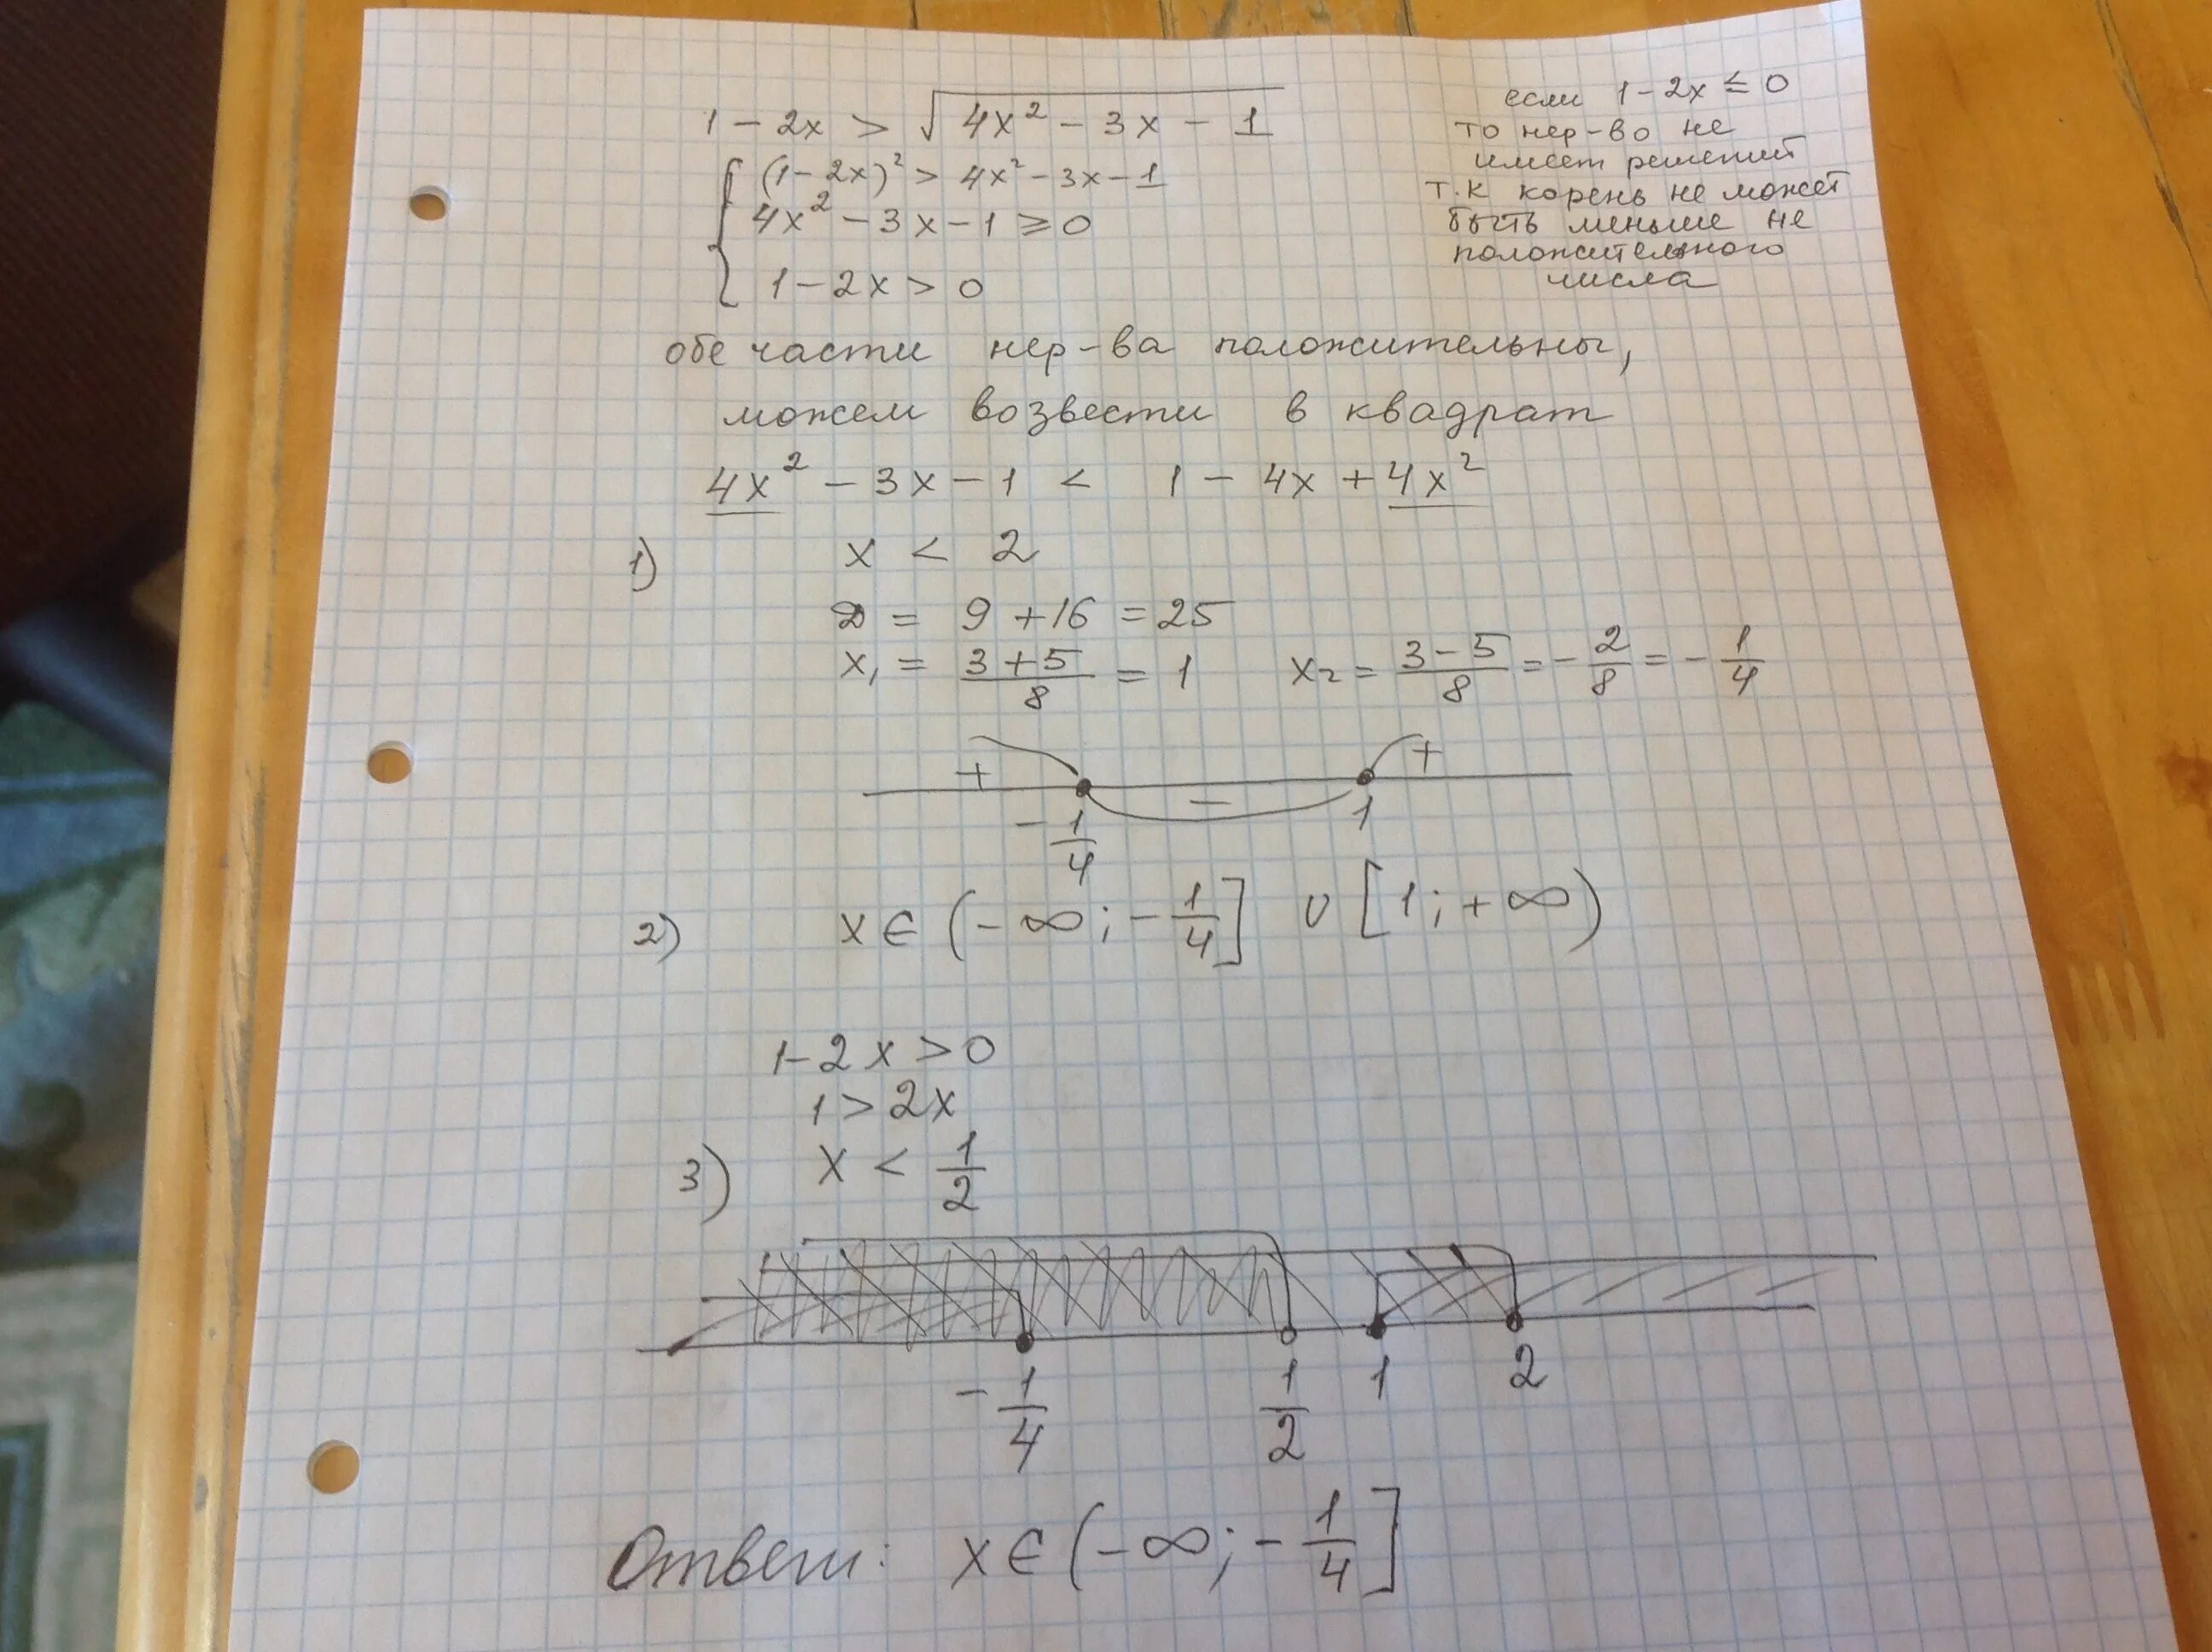 1 - 2x > √(4x² - 3x - 1)
(1 - 2x)² > 4x² - 3x - 1
4x² - 3x - 1 ≥ 0
1 - 2x > 0
если 1 - 2x ≤ 0
то нер-во не
имеет решений
т.к корень не может
быть меньше не
положительного
числа
обе части нер-ва положительны,
можем возвести в квадрат
4x² - 3x - 1 < 1 - 4x + 4x²
1) x < 2
D = 9 + 16 = 25
x₁ = (3 + 5)/8 = 1 x₂ = (3 - 5)/8 = - 2/8 = - 1/4
+ - +
- 1/4 1
2) x ∈ (- ∞ ; - 1/4] ∪ [1 ; + ∞)
1 - 2x > 0
1 > 2x
3) x < 1/2
- 1/4 1/2 1 2
Ответ: x ∈ (- ∞ ; - 1/4]